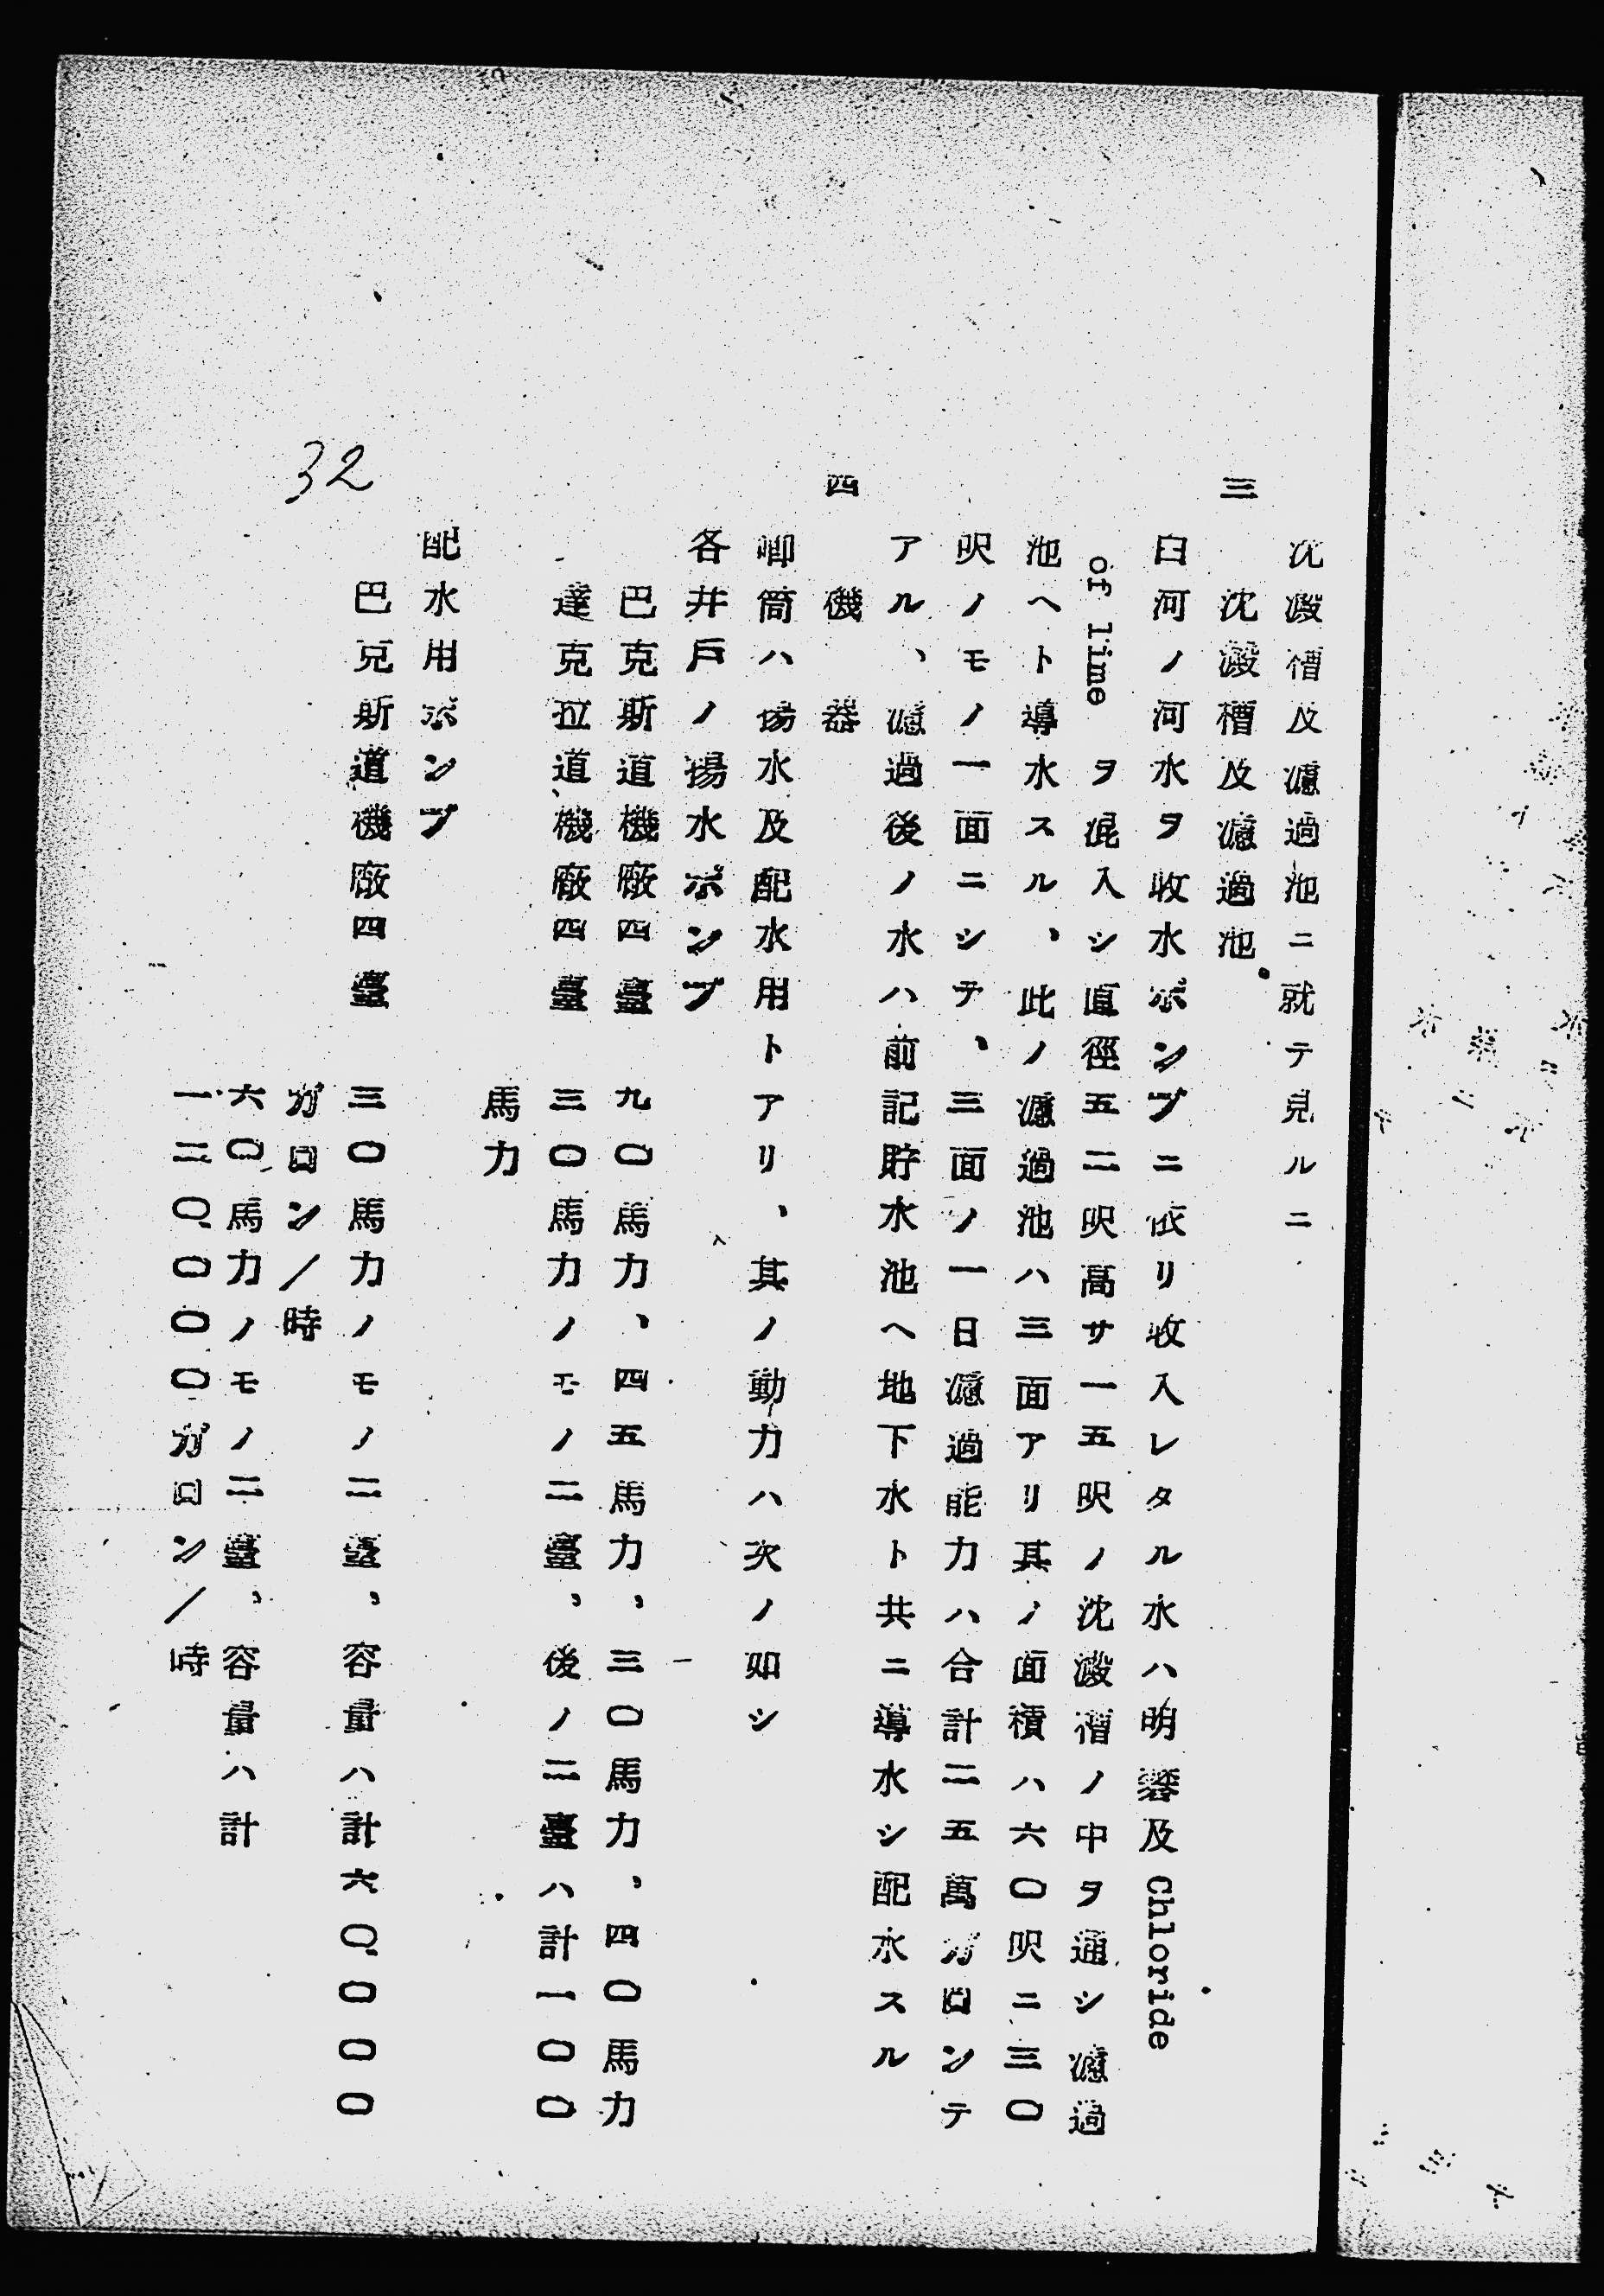 沈澱槽及濾過池ニ就テ見ルニ
三 沈澱槽及濾過池
白河ノ河水ヲ收水ポンプニ依リ收入レタル水ハ明礬及 Chloride
of lime ヲ混入シ直徑五二呎高サ一五呎ノ沈澱槽ノ中ヲ通シ濾過
池ヘト導水スル、此ノ濾過池ハ三面アリ其ノ面積ハ六〇呎ニ三〇
呎ノモノ一面ニシテ、三面ノ一日濾過能力ハ合計二五萬ガロンテ
アル、濾過後ノ水ハ前記貯水池ヘ地下水ト共ニ導水シ配水スル
四 機器
喞筒ハ揚水及配水用トアリ、其ノ動力ハ次ノ如シ
各井戸ノ揚水ポンプ
巴克斯道機廠四臺 九〇馬力、四五馬力、三〇馬力、四〇馬力
達克拉道機廠四臺 三〇馬力ノモノ二臺、後ノ二臺ハ計一〇〇
馬力
配水用ポンプ
巴克斯道機廠四臺 三〇馬力ノモノ二臺、容量ハ計六〇、〇〇〇
ガロン/時
六〇馬力ノモノ二臺、容量ハ計
一二〇、〇〇〇ガロン/時
32